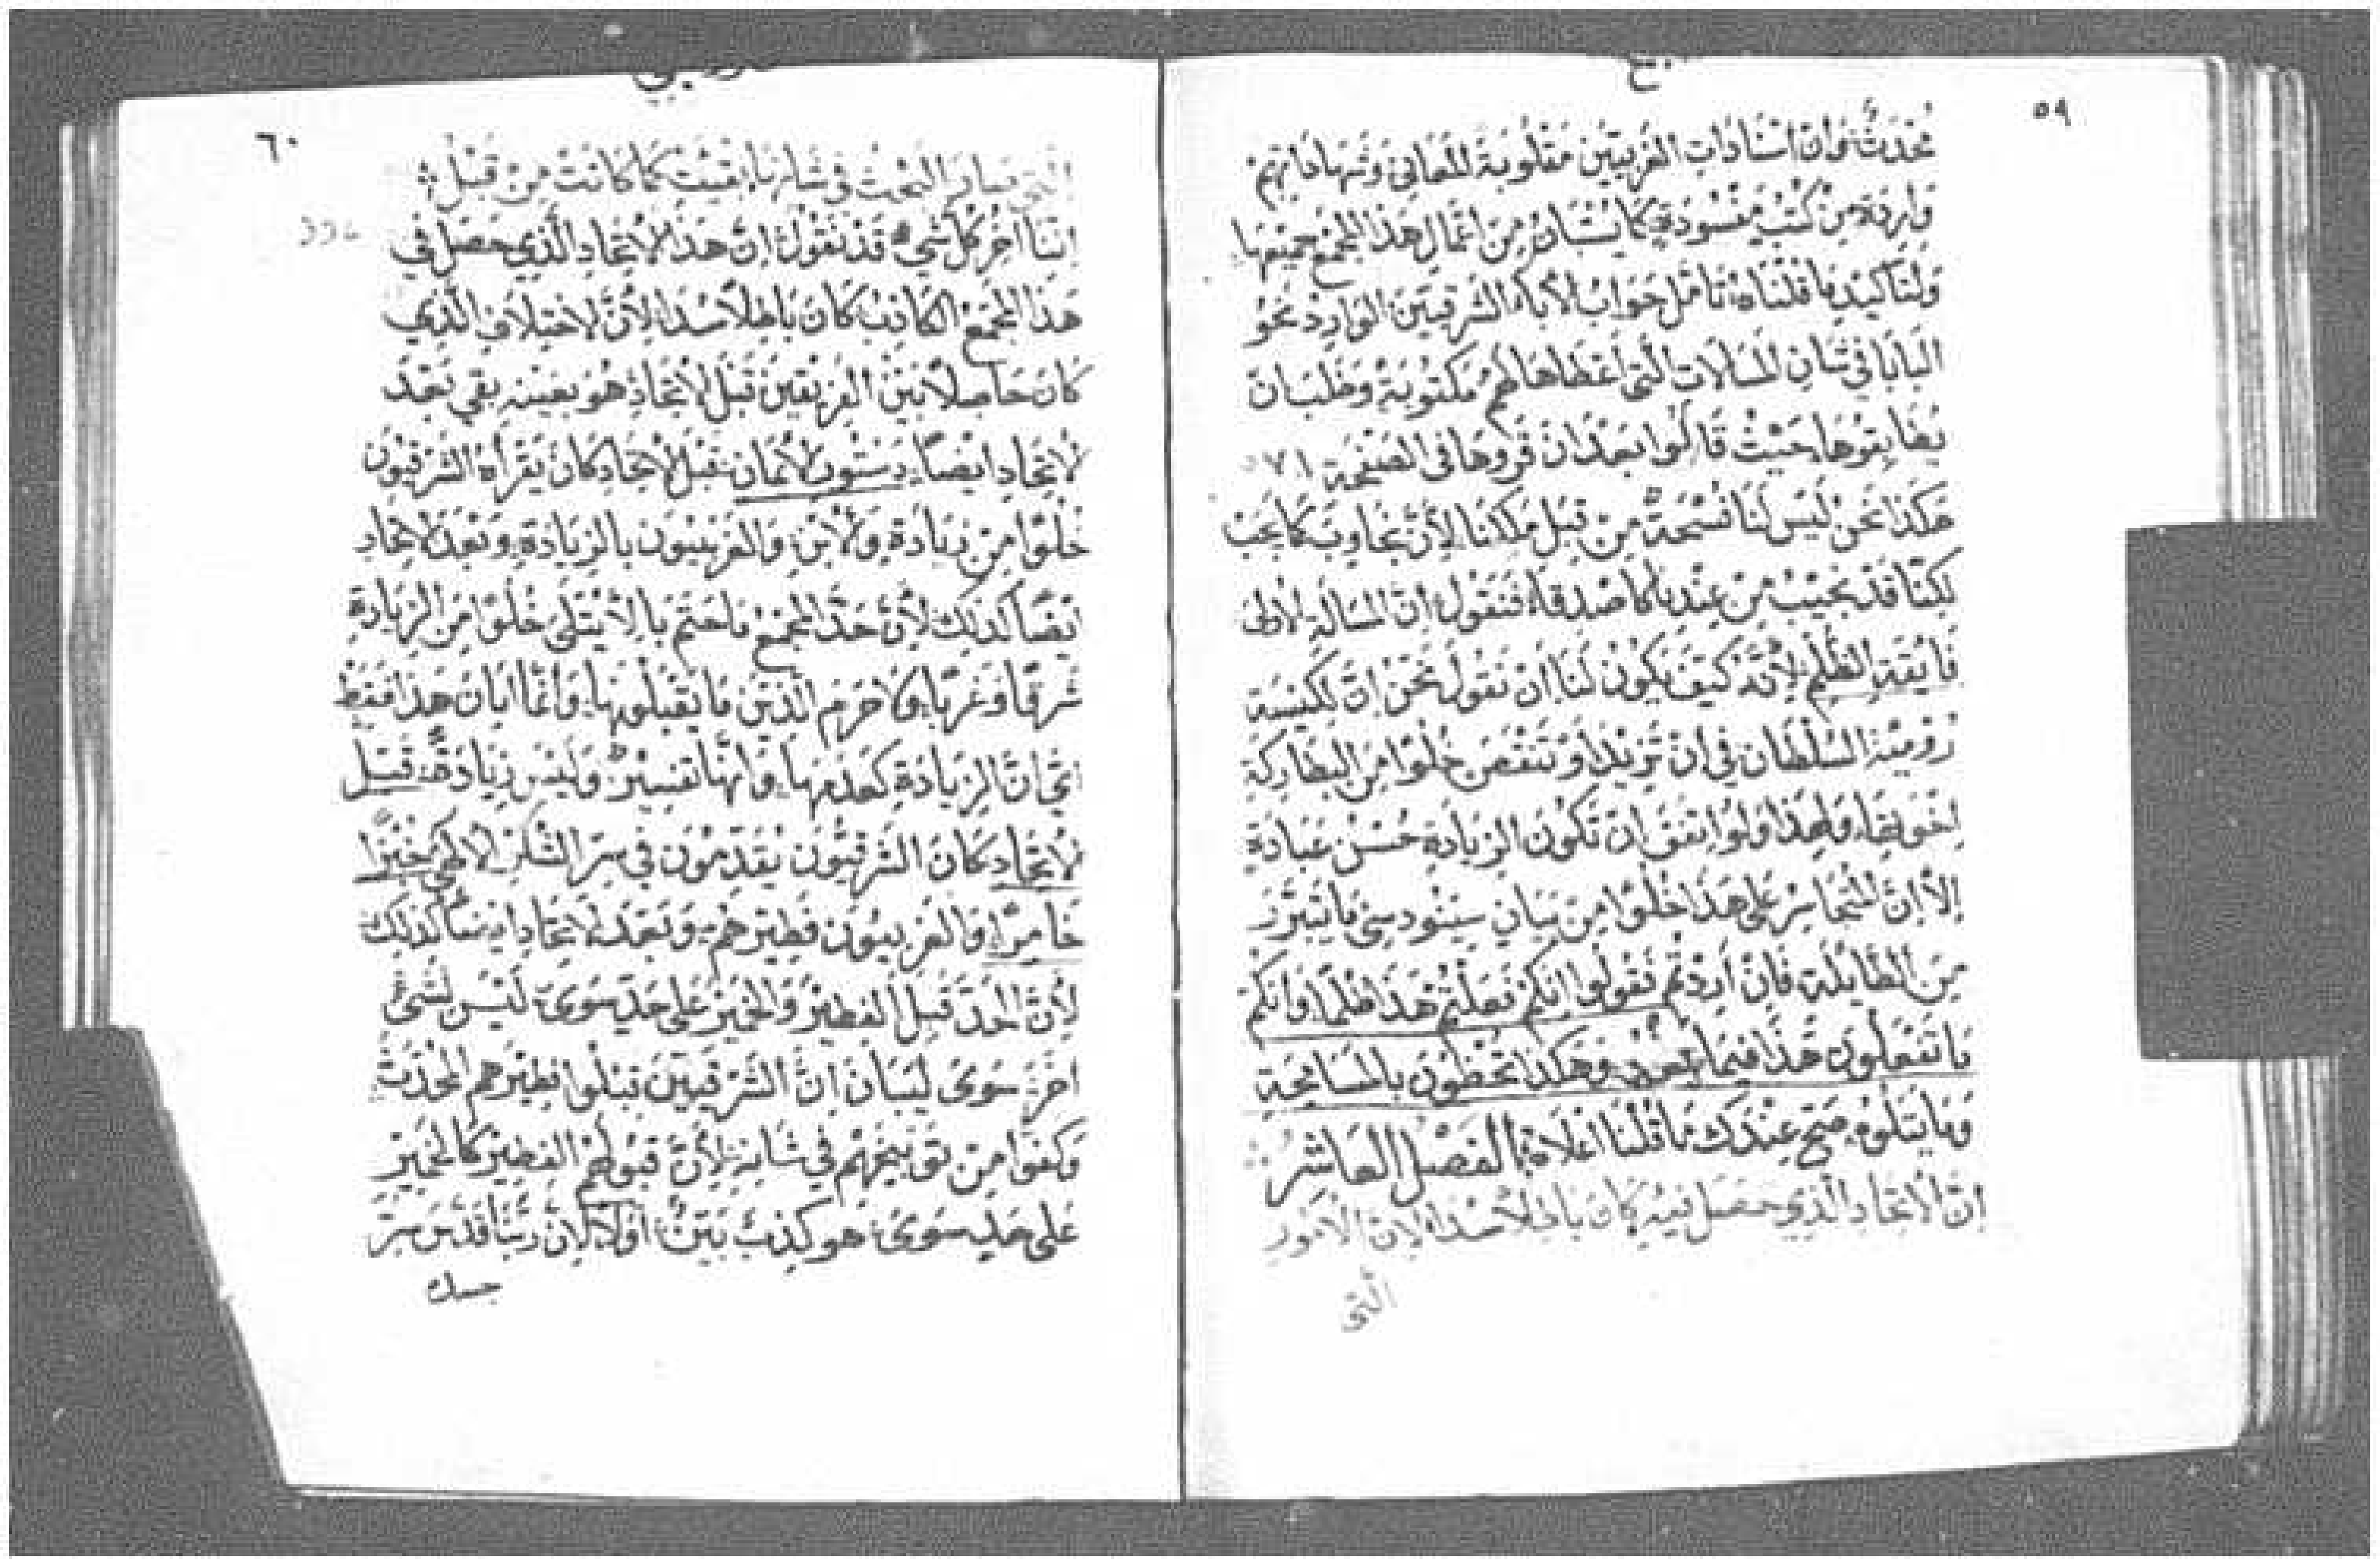 ٥٩
مُحْدَثٌ: وَانَ اسْنَادَاتِ الغَرْبيّيْنَ مَقْلُوبَة المَعَانِي وَشَهَادَاتِهِمْ
وَارِدَة مِنْ كُتُبٍ مَفْسُودَةٍ كَمَا يُبَانُ مِنْ اعْمَالِ هَذَا المَجْمَعِ جَمِيْعهَا
وَلِتَأكِيْدِ مَا قُلْنَاهُ تَامَّل جَوَابَ الابَاء الشَرْقيّينَ الوَارِدْ نَحْوَ
البَابَا فِي شَانِ المسَالَاتِ الَّتِي أعْطَاهَا لَهُمْ مَكْتُوبَةً وَطَلَبَ انْ
يُطَابِقوْهَا، حَيْثُ قَالُوا بَعْدَ انْ قَرَوهَا فى الصَفْحَة ٥٧١
هَكَذَا نَحْنُ لَيْسَ لَنَا فُسْحَةٌ مِنْ قِبَلِ مَلِكنَا لِأنْ نُجَاوِبَ كَمَا يَجِبْ
لَكِنَّا قَدْ نُجِيْبُ مِنْ عِنْدِنَا كَمَا صْدِقَاء فَنَقُولُ انَّ المَسَالَة الاوْلَى
فَايْقَة الظُلْمِ لِأنَّهُ كَيْفَ يَكُونُ لَنَا انْ نَقُولَ نَحْنُ انَّ لِكَنِيسَة
رُوْمِيَّة السُلْطَان فِي انْ تَزِيْدَ اوْ تَنْقصَ خُلْوًا مِنَ البَطَارِكَة
اخوتهَا، وَلِهَذَا وَلَوِ اتفَقَ انْ تَكُونَ الزِيَادَة حُسْنَ عِبَادَةٍ
إلّا انَّ المُتَجَاسِرَ عَلَى هَذَا خُلْوًا مِنْ بَيَانٍ سِيْنُودِسيٍّ مَا يَتَبَرَّرُ
مِنَ الطَايْلَة، فَانْ أرَدْتُمْ فَقُولُوا انَّكُمْ فَعَلْتُمْ هَذَا ظُلْمًا وَانَّكُمْ
مَا تَفْعَلُونَ هَذَا فِيْمَا بَعْدُ: وَهَكَذَا تَحْظَوْنَ بِالمُسَامَحَة
وَمَا يَتْلُوهُ، صَحَّ عِنْدَكَ مَا قُلْنَا اعْلَاهُ: الفَصْلُ العَاشِرُ
إنَّ الاتّحَادَ الَّذِي حَصَلَ فِيْهِ كَانَ بَاطِلًا سُدًا لِانَّ الامُور
الَّتى
٦٠
الَّتِي صَارَ البَحْثُ فى شَانِهَا بَقيَتْ كَمَا كَانَتْ مِنْ قَبْلُ:
انَّنَا اخِرَ كُلِّ شَيْء قَدْ نَقُولُ انَّ هَذَا الاتّحَادَ الَّذِي حَصَلَ فِي
هَذَا المَجْمَعِ الكَاذِبْ كَانَ بَاطِلًا سُدًا لِأنَّ الاخْتِلَافَ الَّذِي
كَانَ حَاصِلًا بَيْنَ الفَرِيْقَيْنِ قَبْلَ الاتّحَادِ هُوَ بِعَيْنِهِ بَقِي بَعْدَ
الاتّحَادِ ايْضًا، دُسْتُورُ الأمَانَة قَبْلَ الاتّحَادِ كَانَ يَقْرَأهُ الشَرْقيُّونَ
خُلْوًا مِنْ زِيَادَةِ وَالابْنِ: وَالغَرْبيُّونَ بِالزِيَادَةِ وَبَعْدَ الاتّحَادِ
ايْضًا كَذَلِكَ لِأنَّ حَدَّ المَجْمَعِ مَا حَتَمَ بِالّا يُتْلَى خُلْوًا مِنَ الزِيَادَةِ
شَرْقًا وَغَرْبًا، وَلَا حَرَمَ الَّذِيْنَ مَا يَقْبَلُونَهَا، وَانَّمَا ابَانَ هَذَا فَقَطْ
ايْ انَّ الزِيَادَةِ كَعَدَمِهَا، وَانَّهَا تَفْسِيْرٌ وَلَيْسَ زِيَادَةً: قَبْلَ
الاتّحَادِ كَانَ الشَرْقيُّونَ يُقَدِّمُونَ فِي سِرِّ الشُكْرِ الالهيّ خُبْزًا
خَامِرًا، وَالغَرْبيُّونَ فَطِيْرَهُمْ، وَبَعْدَ الاتّحَادِ ايْضًا كَذَلِكَ
لِأنَّ الحَدَّ قَبِلَ الفَطِيْرَ وَالخَمِيْرَ عَلَى حَدٍّ سَوَى، لَيْسَ لِشَيْءٍ
اخَرَ سَوَى لِيَبَانَ انَّ الشَرْقيّينَ قَبلُوا فطِيْرَهم المُحْدَثَ
وَكَفوا مِنْ تَوْبِيْخِهِمْ فِي شَانِهِ، لِأنَّ قَبُولَهُمُ الفَطِيْرَ كَالخَمِيْرِ
عَلَى حَدٍّ سَوَى: هُوَ كَذِبٌ بَيّنٌ: أوَّلًا لِأنَّ رَبَّنَا قَدَّسَ سِرَّ
جسده